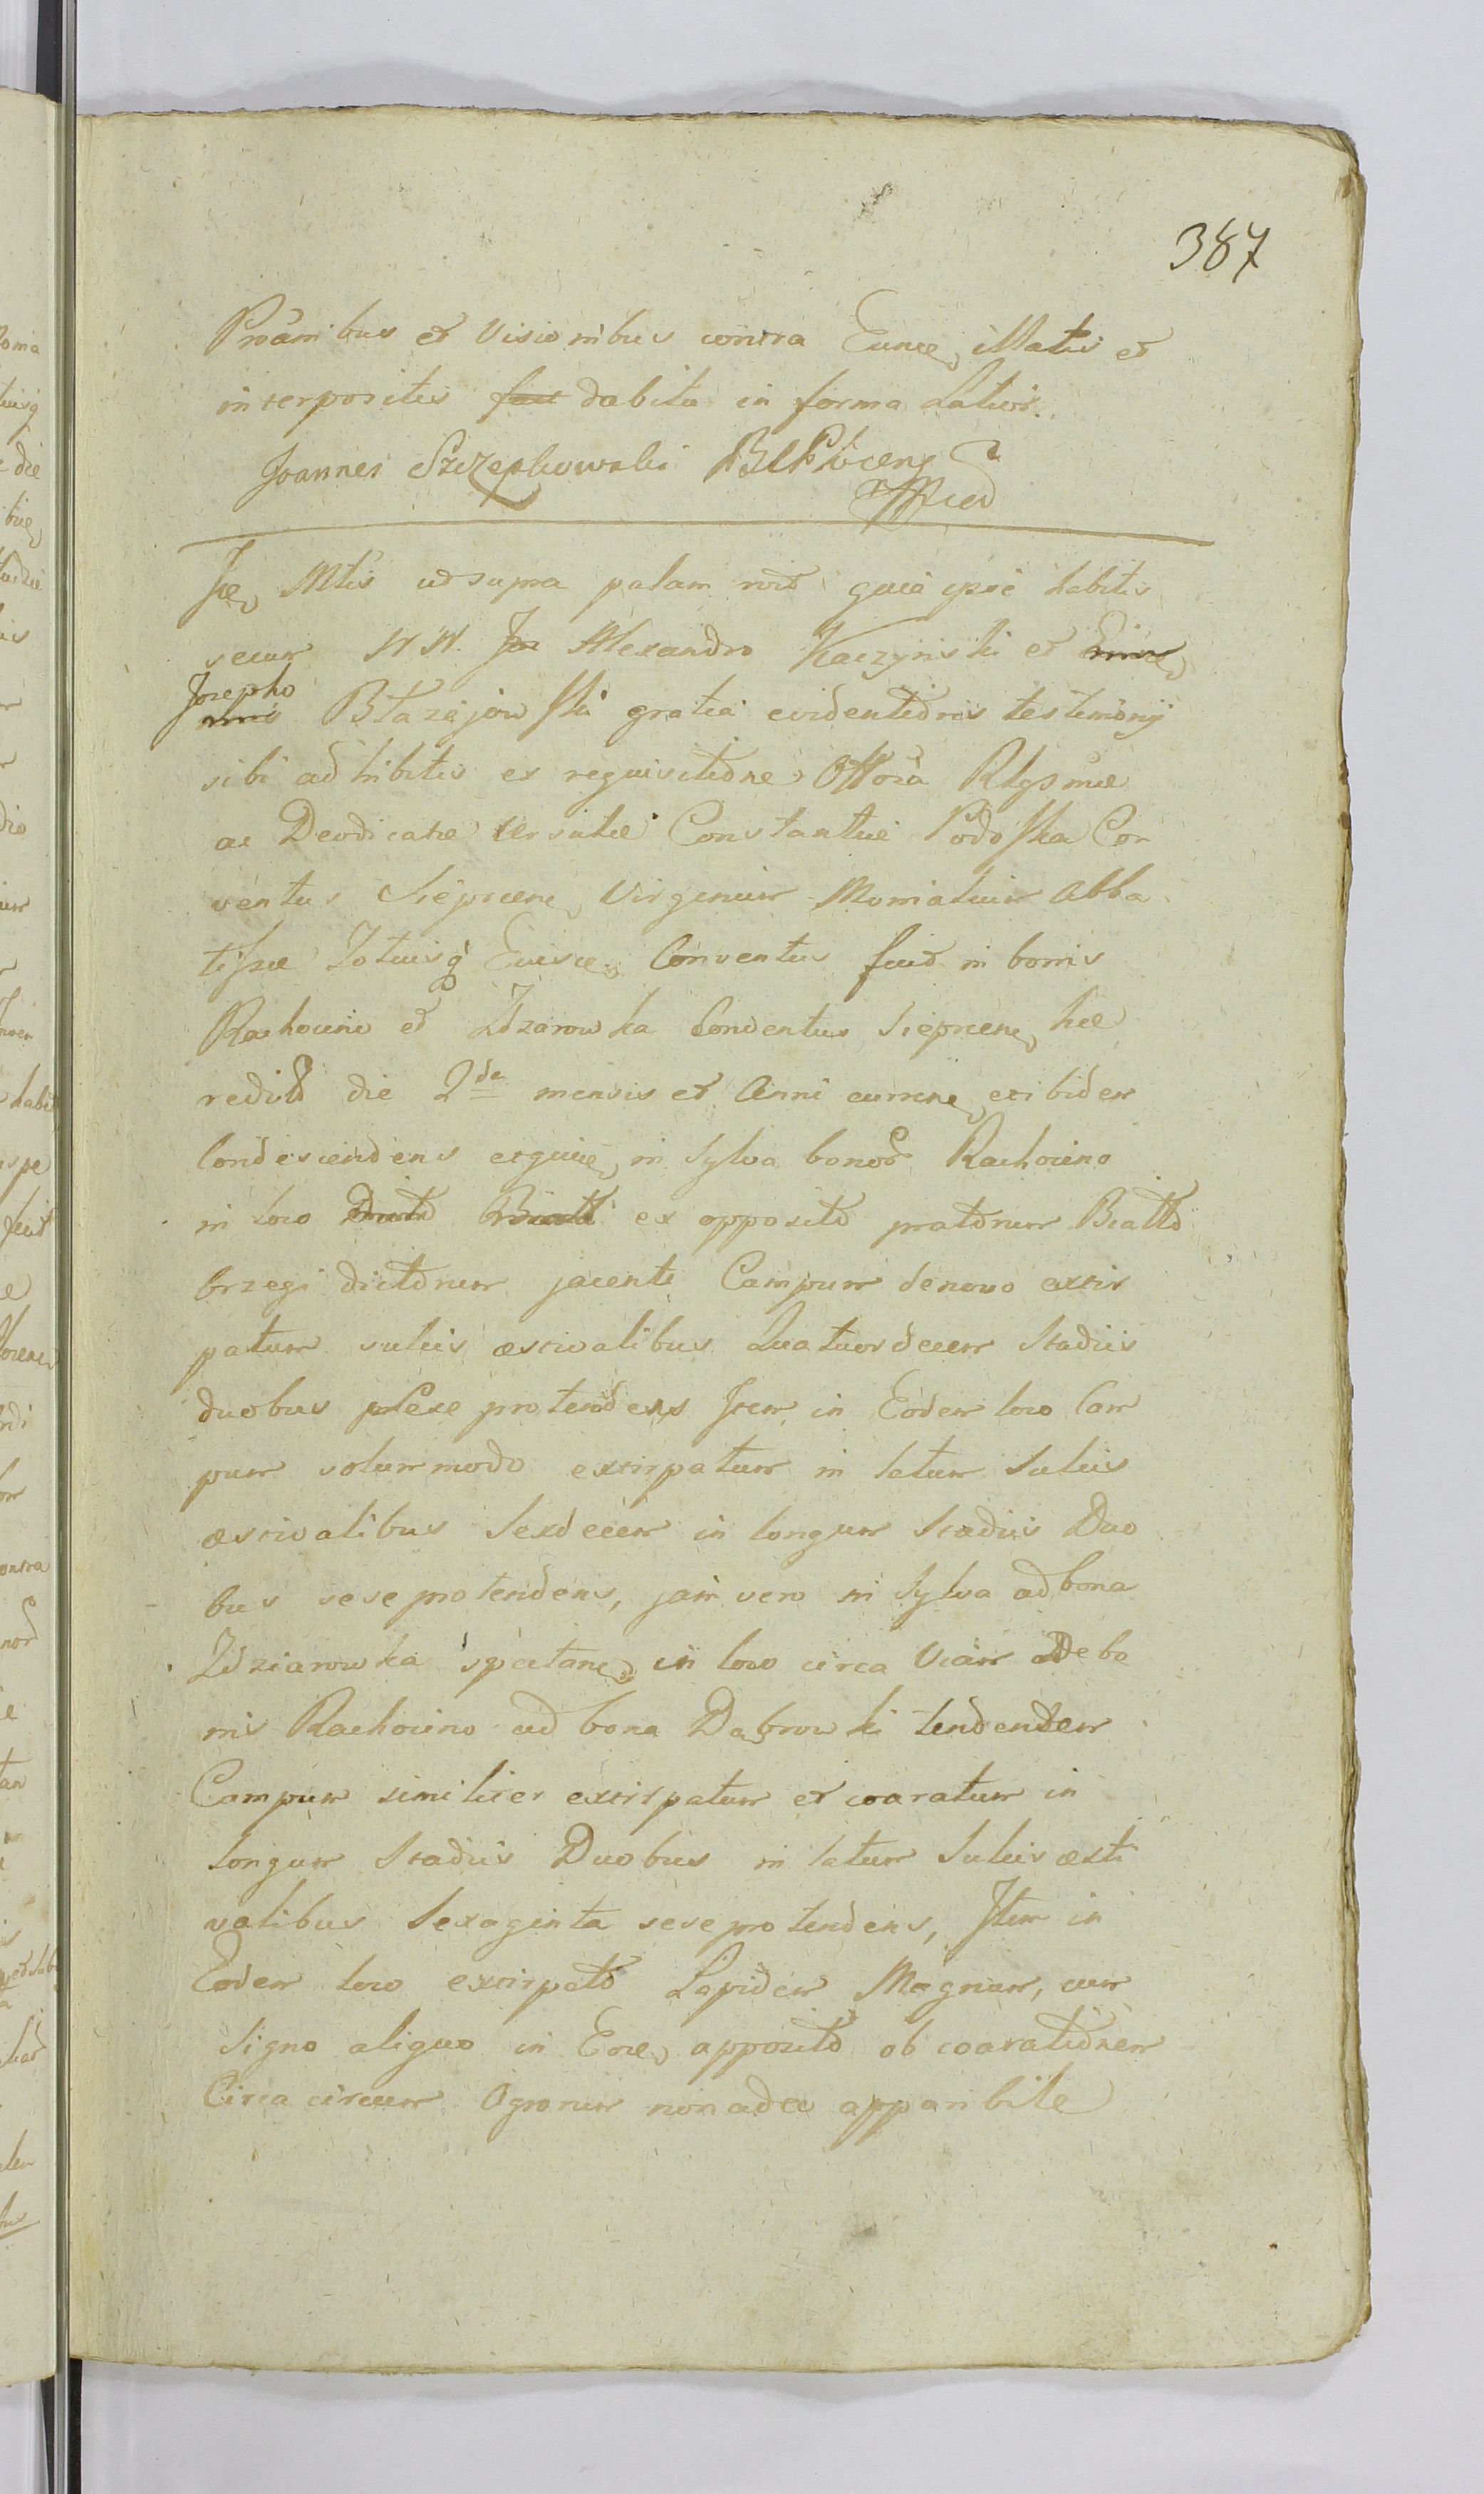 387
Prõãmibus et Visionibus contra Eund illatis et
interpositis fact dabita in forma Latiori.
Joannes Szczepkowski
Id Mtis ut supra palam rñt quia ipse habitis
secum NN. Jo Alexandro Kaczynski et
Josepho Błazejowski gratia evidentioris testimonij
sibi adhibitis ex requisitione
ac Deodicatae Constantiae Podoska Con
ventus Sieprcen Virginum Monialium Abba
tissae Totiusq Eiusd Conventus fuit in bonis
Rachocino et Zdzarowka Conventus Sieprcen hae
redit die 2da mensis et Anni curren et ibidem
Condescendens in Sylva bonor Rachocino
in loco ex opposito pratorum Biatto
brzegi dictorum jacente Campum denovo extir
patum sulcis aestivalibus Quatuordecem Stadiis
duobus sese protendens Item in Eodem loco Cam
pum solummodo extirpatum in latum Sulcis
aestivalibus Sexdecem in longum Stadiis Duo
bus sese protendens, jam vero in Sylva ad bona
Zdziarowka spectan in loco circa Viam de bo
nis Rachocino ad bona Dąbrowki tendentem
Campum similiter extirpatum et coaratum in
longum Stadiis Duobus in latum Sulcis aesti
valibus Sexaginta sese protendens, Item in
Eodem loco extirpato Lapidem Magnum, cum
Signo aliquo in Eod apposito ob coarationem
Circa circum Agrorum non adeo apparibile